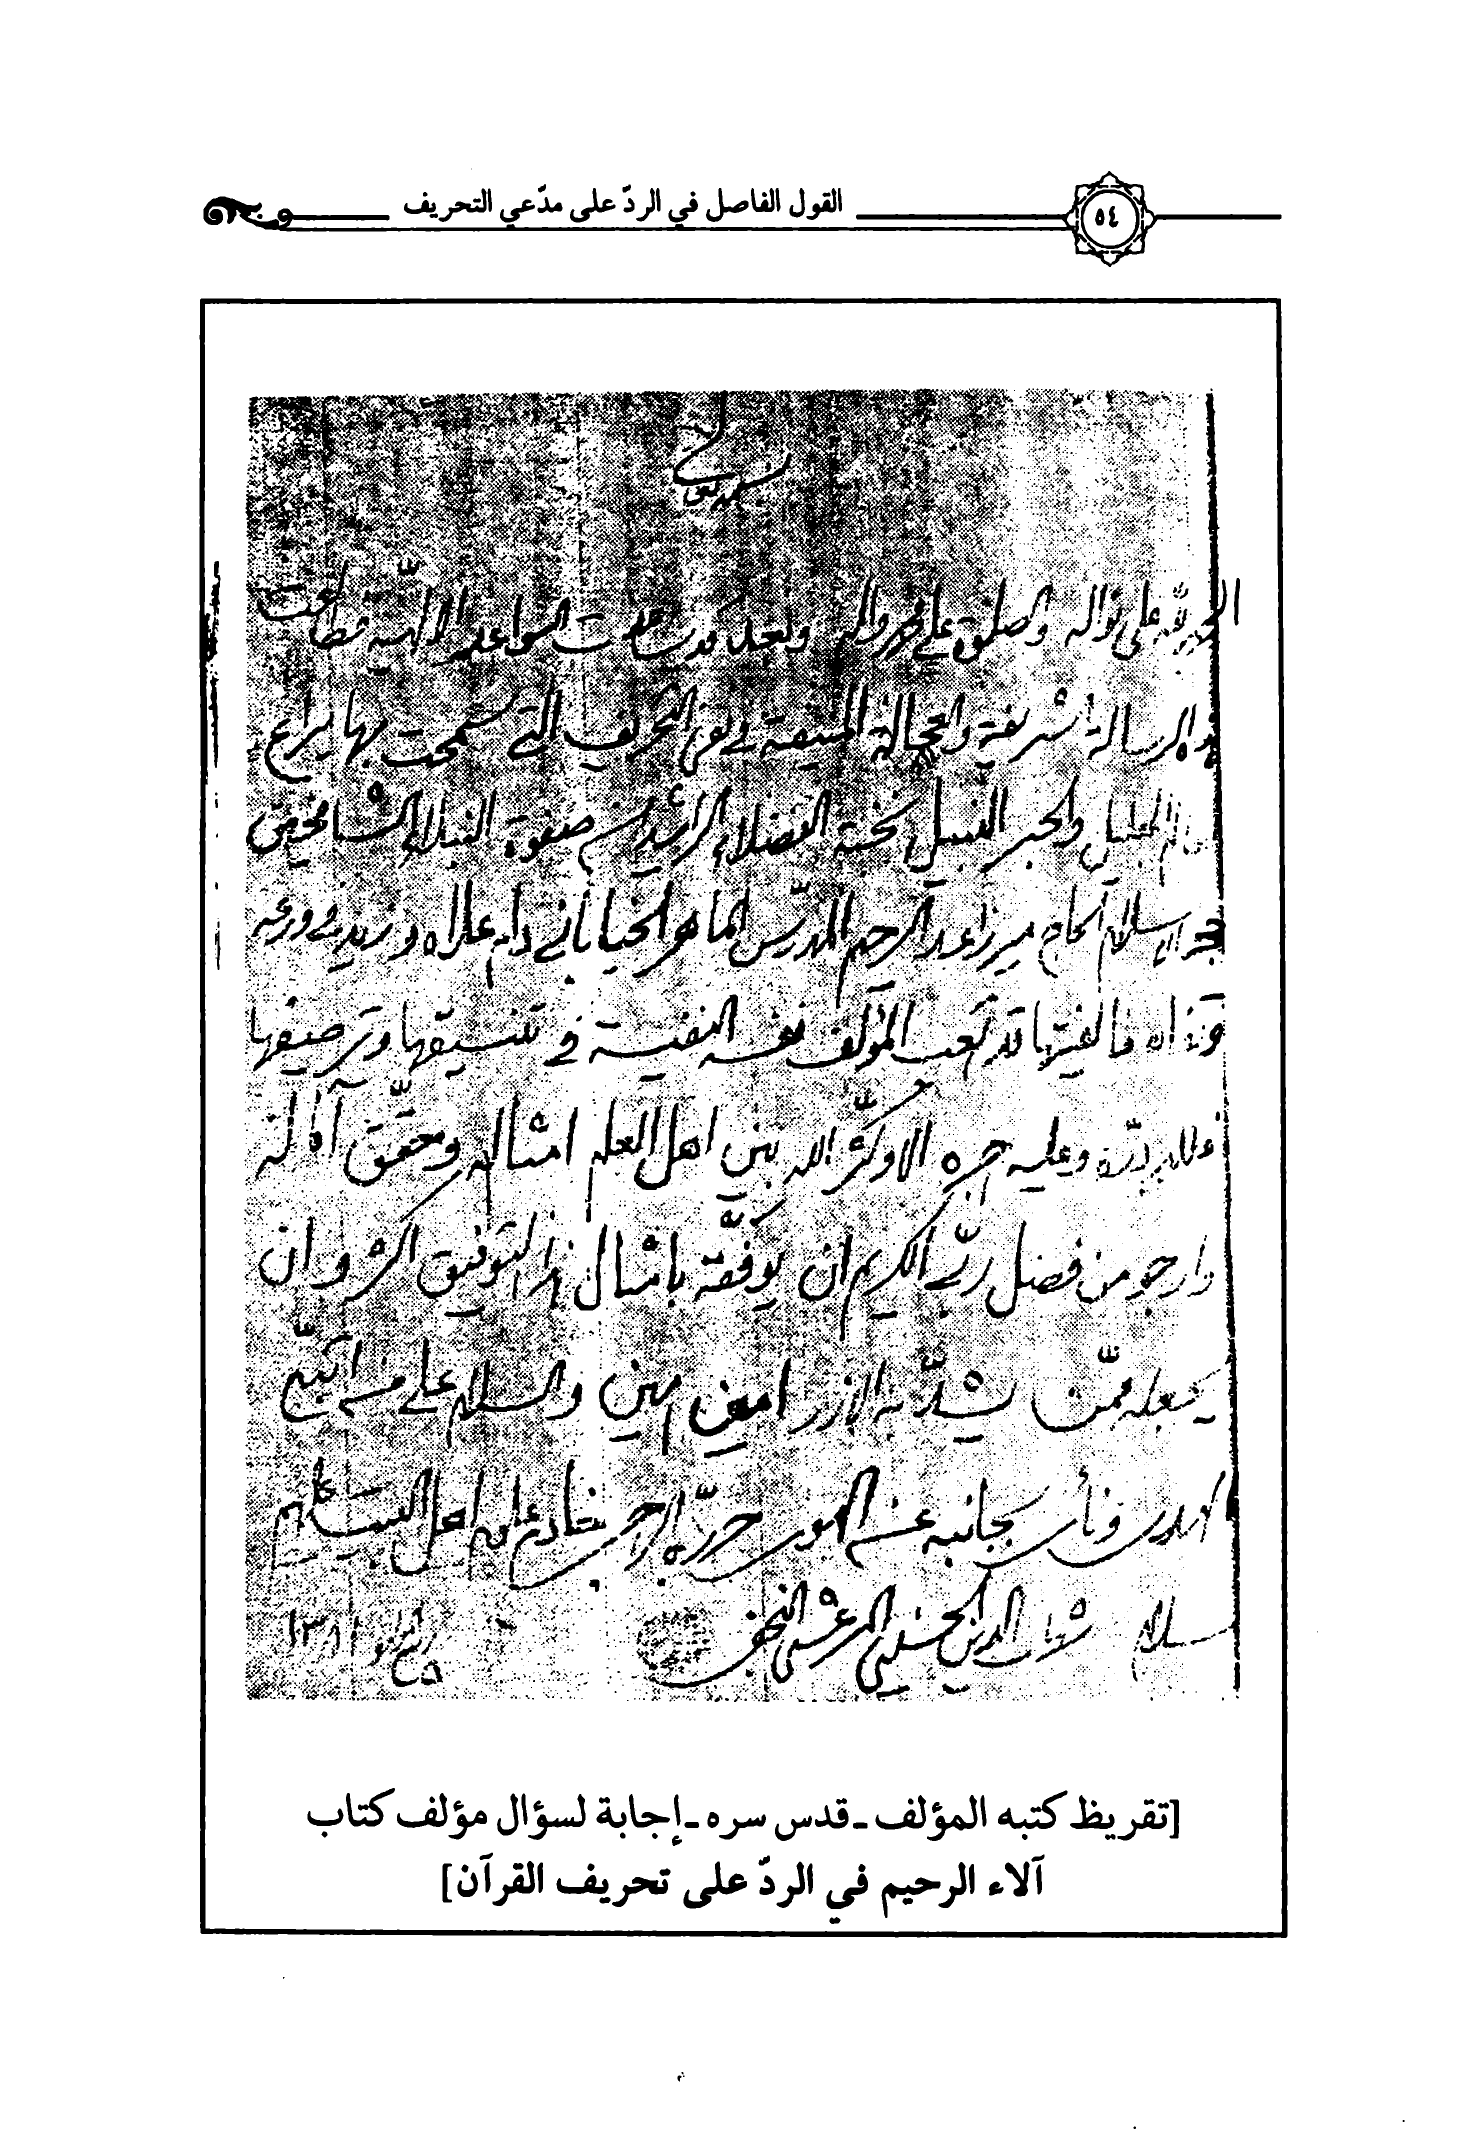 القول الفاصل في الردّ على مدّعي التحريف
٥٤
بسمه تعالى
الحمد لله على نواله والصلوة على محمد وآله وبعد فقد ساعدت السواعد الالهية فطالعت
هذه الرسالة الشريفة والعجالة المنيفة في نفي التحريف التي سمحت بها يراع
العالم الجليل والحبر النبيل نخبة الفضلاء الراشدين صفوة النبلاء الشامخين
حجة الاسلام الحاج ميرزا عبد الرحيم المدرس الماهر الخياباني دام علاه وزيد في ورعه
فالفيتها قد تعب المؤلف نفسه النفيسة في تنسيقها وترصيفها
فلله درّه وعليه اجره الا وكثّر الله بين اهل العلم امثاله وحقّق آماله
وارجو من فضل ربّي الكريم ان يوفّقه بامثال هذا التوفيق اكثر وان
يجعله ممّن يشدّ به الازر امين امين والسلام على من اتبع
الهدى ونأى بجانبه عن الهوى حرّره الراجي خادم علوم اهل البيت عليهم
السلام شهاب الدين الحسيني المرعشي النجفي
١٣٨١
[تقريظ كتبه المؤلف ـ قدس سره ـ إجابة لسؤال مؤلف كتاب
آلاء الرحيم في الردّ على تحريف القرآن]